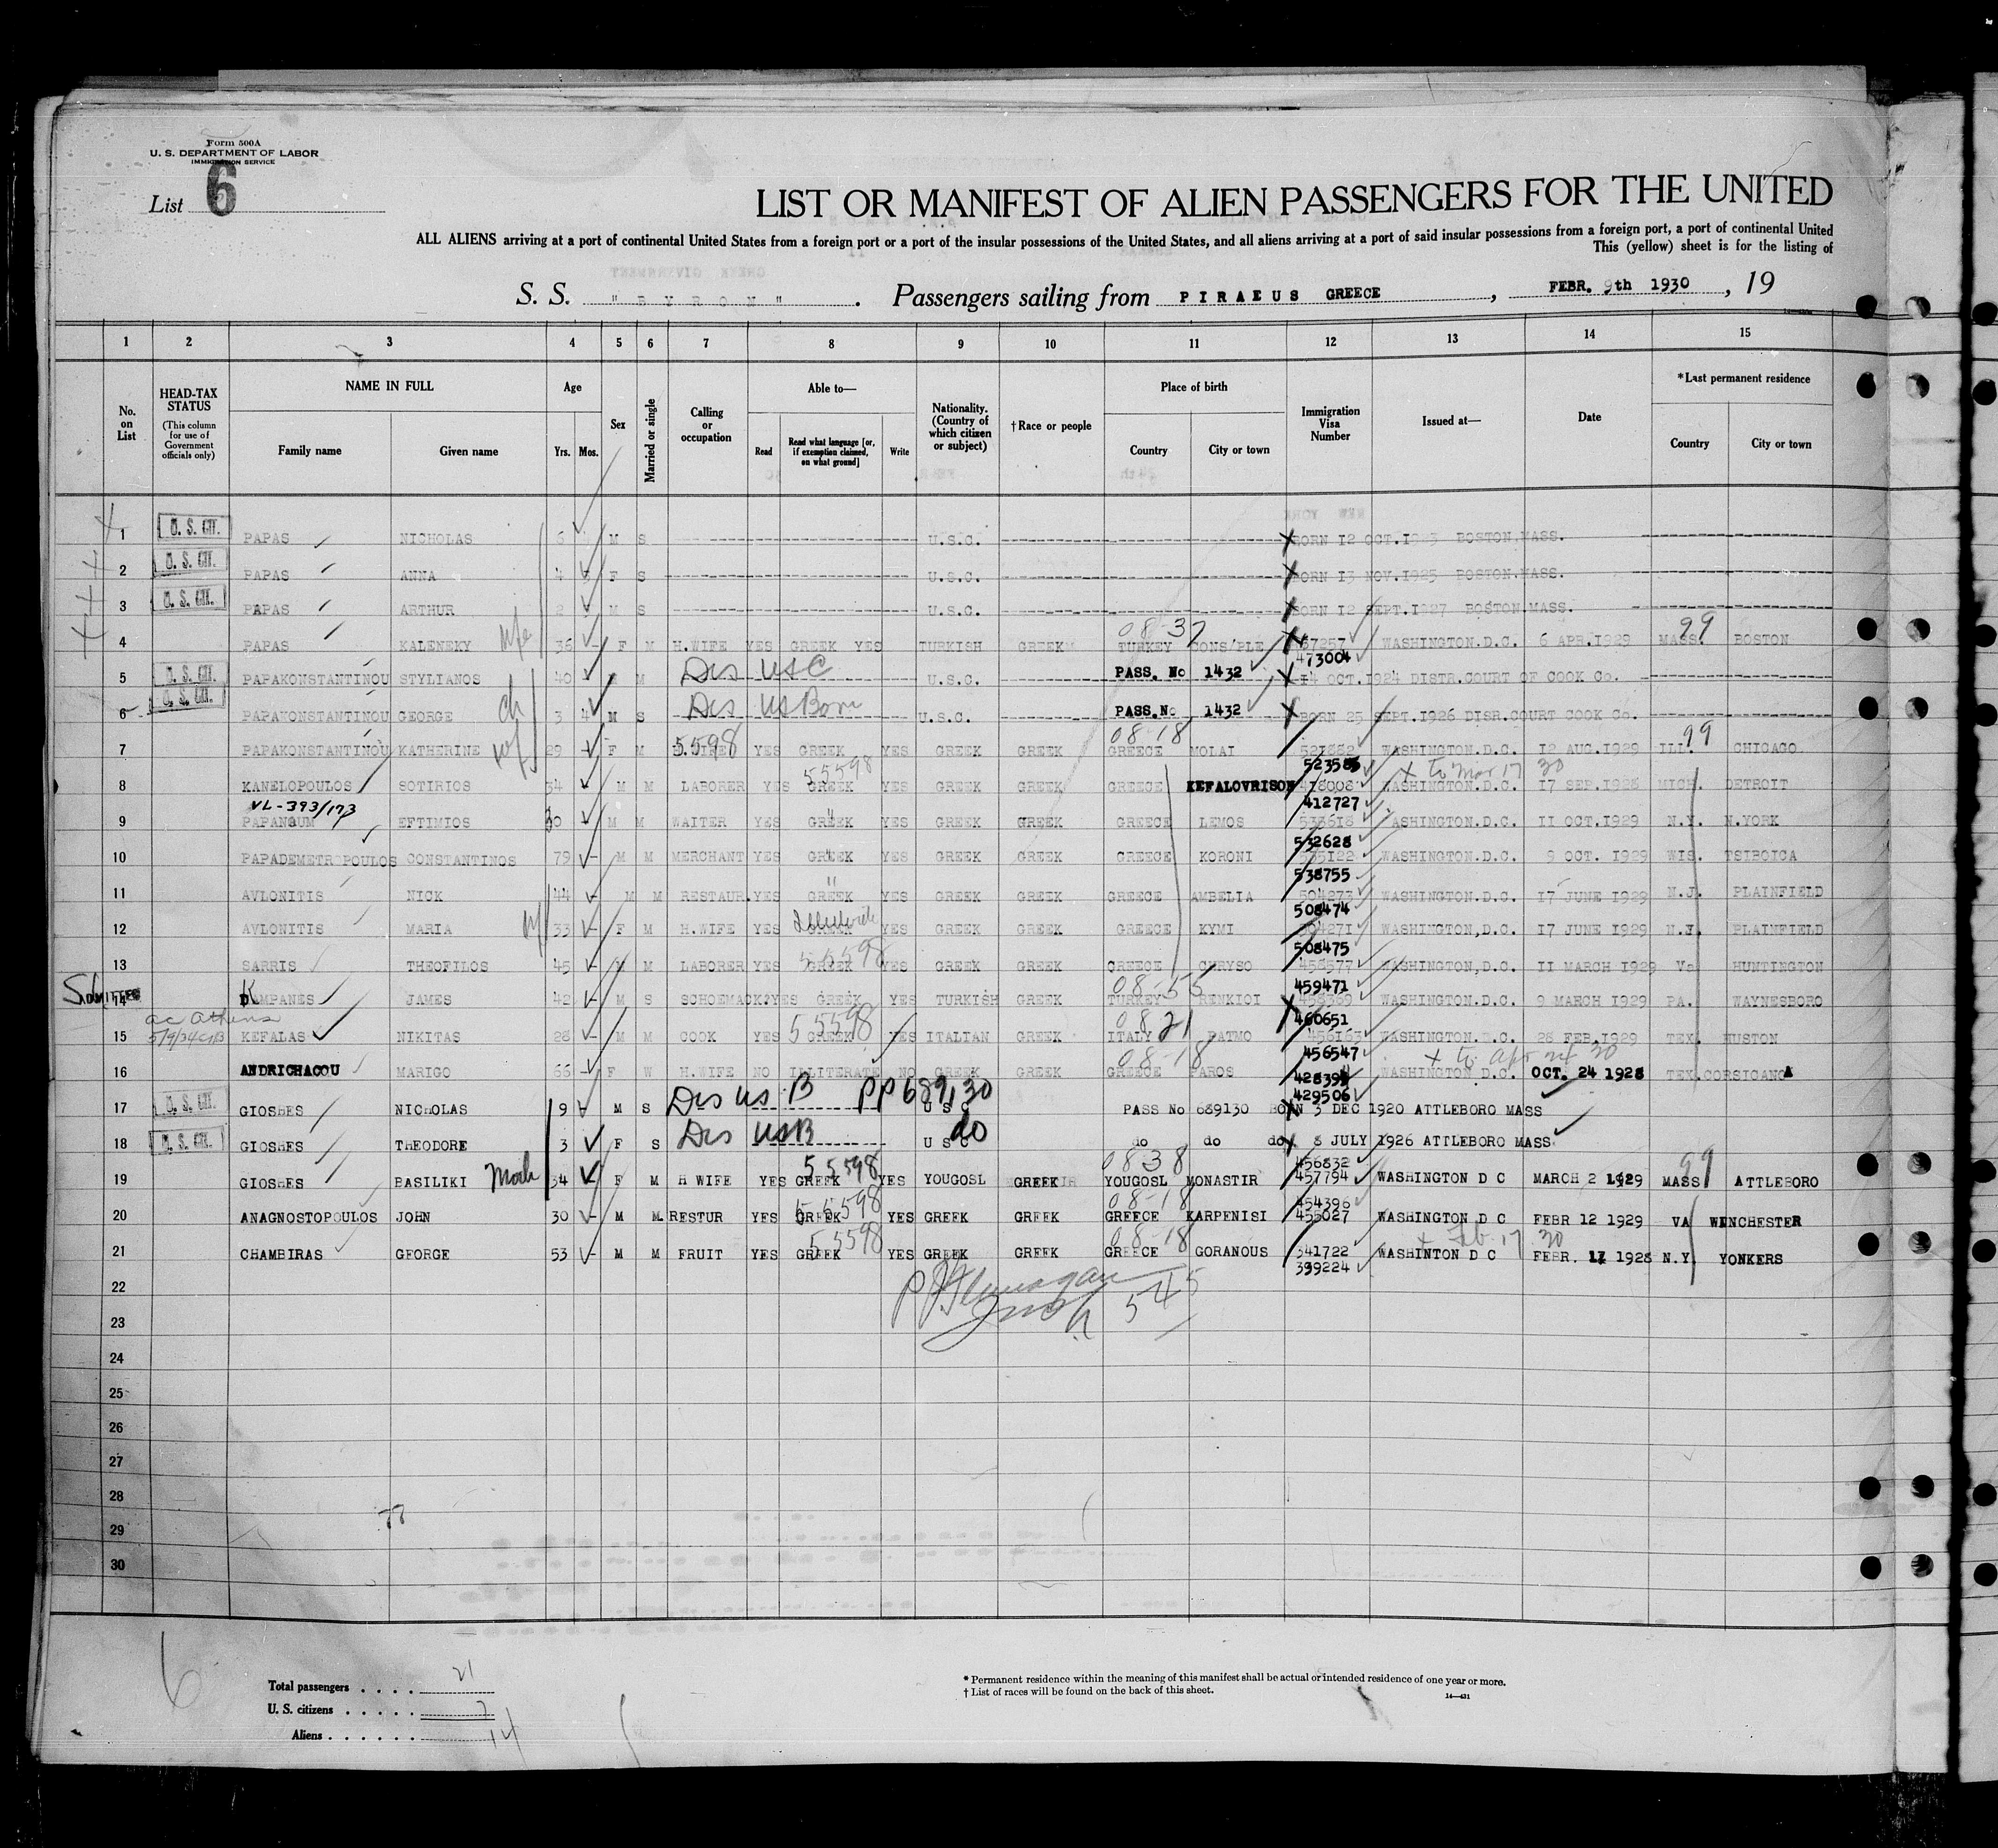 Form 500A
U. S. DEPARTMENT OF LABOR
IMMIGRATION SERVICE
List 6
LIST OR MANIFEST OF ALIEN PASSENGERS FOR THE UNITED
ALL ALIENS arriving at a port of continental United States from a foreign port or a port of the insular possessions of the United States, and all aliens arriving at a port of said insular possessions from a foreign port, a port of continental United
This (yellow) sheet is for the listing of
S. S. "BYRON" . Passengers sailing from PIRAEUS GREECE , FEBR. 9th 1930 , 19
1 2 3 4 5 6 7 8 9 10 11 12 13 14 15
No. on List
HEAD-TAX STATUS (This column for use of Government officials only)
NAME IN FULL
Family name Given name
Age Yrs. Mos.
Sex
Married or single
Calling or occupation
Able to—
Read Read what language [or, if exemption claimed, on what ground] Write
Nationality. (Country of which citizen or subject)
†Race or people
Place of birth
Country City or town
Immigration Visa Number
Issued at—
Date
*Last permanent residence
Country City or town
1 U. S. CIT. PAPAS NICHOLAS 6 M S U.S.C. BORN 12 OCT. BOSTON MASS.
2 U. S. CIT. PAPAS ANNA 4 F S U.S.C. BORN 13 NOV.1925 BOSTON MASS.
3 U. S. CIT. PAPAS ARTHUR 2 M S U.S.C. BORN 12 SEPT.1927 BOSTON MASS.
08-37 99
4 PAPAS KALENEKY wife 36 F M H.WIFE YES GREEK YES TURKISH GREEK TURKEY CONS/PLE 467257 WASHINGTON.D.C. 6 APR.1929 MASS. BOSTON
473004
5 U. S. CIT. PAPAKONSTANTINOU STYLIANOS 40 M Dis USC U.S.C. PASS. No 1432 14 OCT.1924 DISTR.COURT OF COOK Co.
6 U. S. CIT. PAPAKONSTANTINOU GEORGE ch 3 4 M S Dis US Born U.S.C. PASS.No 1432 BORN 25 SEPT.1926 DISR.COURT COOK Co.
5598 08-18 99
7 PAPAKONSTANTINOU KATHERINE wf 29 F M H.WIFE YES GREEK YES GREEK GREEK GREECE MOLAI 521882 WASHINGTON.D.C. 12 AUG.1929 ILL. CHICAGO
55598 523586 x to Mar 17 30
8 KANELOPOULOS SOTIRIOS 34 M M LABORER YES GREEK GREECE KEFALOVRISON 418008 WASHINGTON.D.C. 17 SEP.1928 MICH. DETROIT
VL-393/173 412727
9 PAPANAUM EFTIMIOS 30 M M WAITER YES GREEK YES GREEK GREEK GREECE LEMOS 533618 WASHINGTON.D.C. 11 OCT.1929 N.Y. N.YORK
532628
10 PAPADEMETROPOULOS CONSTANTINOS 79 M M MERCHANT YES GREEK YES GREEK GREEK GREECE KORONI 535122 WASHINGTON.D.C. 9 OCT. 1929 WIS. TSIBOICA
538755
11 AVLONITIS NICK 44 M M RESTAUR. YES GREEK YES GREEK GREEK GREECE AMBELIA 504273 WASHINGTON.D.C. 17 JUNE 1929 N.J. PLAINFIELD
508474
12 AVLONITIS MARIA 33 F M H.WIFE YES GREEK YES GREEK GREEK GREECE KYMI 504271 WASHINGTON,D.C. 17 JUNE 1929 N.J. PLAINFIELD
55598 508475
13 SARRIS THEOFILOS 45 M M LABORER YES GREEK YES GREEK GREEK GREECE CHRYSO 458577 WASHINGTON,D.C. 11 MARCH 1929 Va HUNTINGTON
ADMITTED 08-55 459471
14 KAMPANES JAMES 42 M S SCHOEMACK? YES GREEK YES TURKISH GREEK TURKEY RENKIOI 458369 WASHINGTON.D.C. 9 MARCH 1929 PA. WAYNESBORO
ac Athens 55598 0821 460651
15 KEFALAS NIKITAS 28 M M COOK YES GREEK YES ITALIAN GREEK ITALY PATMO 456163 WASHINGTON.D.C. 28 FEB.1929 TEX. HUSTON
08-18 456547 x to Apr 24 30
16 ANDRICHACOU MARIGO 66 F W H.WIFE NO ILLITERATE NO GREEK GREEK GREECE PAROS 428394 WASHINGTON D.C. OCT. 24 1928 TEX. CORSICANA
429506
17 U. S. CIT. GIOSHES NICHOLAS 9 M S Dis US B PP 689,30 U S C PASS No 689130 BORN 3 DEC 1920 ATTLEBORO MASS
18 U. S. CIT. GIOSHES THEODORE 3 F S Dis USB do U S C do do do 8 JULY 1926 ATTLEBORO MASS
55598 0838 456832 99
19 GIOSHES BASILIKI Moth 34 F M H WIFE YES GREEK YES YOUGOSL GREEK YOUGOSL MONASTIR 457794 WASHINGTON D C MARCH 2 1929 MASS ATTLEBORO
55598 08-18 454396
20 ANAGNOSTOPOULOS JOHN 30 M M. RESTUR YES GREEK YES GREEK GREEK GREECE KARPENISI 455027 WASHINGTON D C FEBR 12 1929 VA WINCHESTER
55598 08-18 x Feb 17 30
21 CHAMBIRAS GEORGE 53 M M FRUIT YES GREEK YES GREEK GREEK GREECE GORANOUS 341722 WASHINTON D C FEBR. 17 1928 N.Y. YONKERS
399224
22
545
23
24
25
26
27
28
29
30
6
Total passengers . . . . 21
U. S. citizens . . . . . 7
Aliens . . . . . . 14
* Permanent residence within the meaning of this manifest shall be actual or intended residence of one year or more.
† List of races will be found on the back of this sheet.
14—421